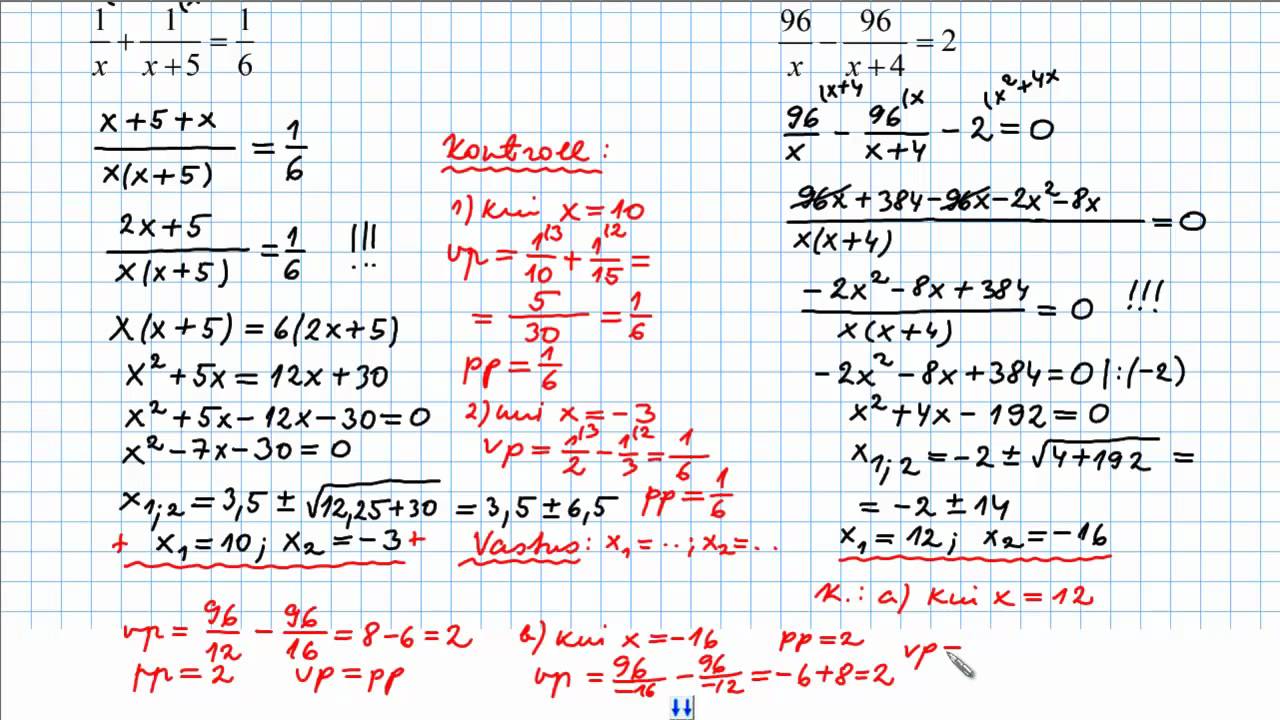 1/x + 1/(x+5) = 1/6
(x+5+x)/(x(x+5)) = 1/6
(2x+5)/(x(x+5)) = 1/6 !!!
x(x+5) = 6(2x+5)
x²+5x = 12x+30
x²+5x-12x-30=0
x²-7x-30=0
x₁;₂ = 3,5 ± √(12,25+30) = 3,5 ± 6,5
+ x₁=10; x₂=-3 +
Kontroll:
1) kui x=10
vp = 1⁽³/10 + 1⁽²/15 =
= 5/30 = 1/6
pp = 1/6
2) kui x = -3
vp = 1⁽³/2 - 1⁽²/3 = 1/6
pp = 1/6
Vastus: x₁=..; x₂=..
96/x - 96/(x+4) = 2
96⁽ˣ⁺⁴/x - 96⁽ˣ/(x+4) - 2⁽ˣ²⁺⁴ˣ = 0
(96x+384-96x-2x²-8x)/(x(x+4)) = 0
(-2x²-8x+384)/(x(x+4)) = 0 !!!
-2x²-8x+384=0 |:(-2)
x²+4x-192=0
x₁;₂ = -2 ± √(4+192) =
= -2 ± 14
x₁=12; x₂=-16
K.: a) kui x=12
vp = 96/12 - 96/16 = 8-6 = 2
pp = 2 vp = pp
b) kui x=-16 pp=2
vp = 96/-16 - 96/-12 = -6+8 = 2
vp =